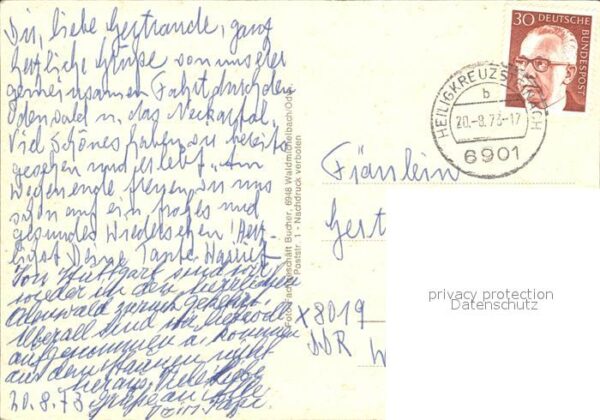 Dir, liebe Gertraude, ganz
herzliche Grüße von unserer
gemeinsamen Fahrt durch den
Odenwald u. das Neckartal.
Viel Schönes haben wir bereits
gesehen und erlebt. Am
Wochenende freuen wir uns
schon auf ein frohes und
gesundes Wiedersehen! Herz-
lichst Deine Tante Harriet
Von Stuttgart sind wir
wieder in den herrlichen
Odenwald zurück gekehrt.
Überall sind wir liebevoll
aufgenommen u. kommen
aus dem Staunen nicht
heraus. Viele liebe
20.8.73 Grüße an alle
Foto-Fachgeschäft Bucher, 6948 Waldmichelbach/Odw.
Poststr. 1 - Nachdruck verboten
30 DEUTSCHE
BUNDESPOST
HEILIGKREUZSTEINACH
b
20.-8.73-17
6901
Fräulein
Gert
x 8019
DDR
W
privacy protection
Datenschutz